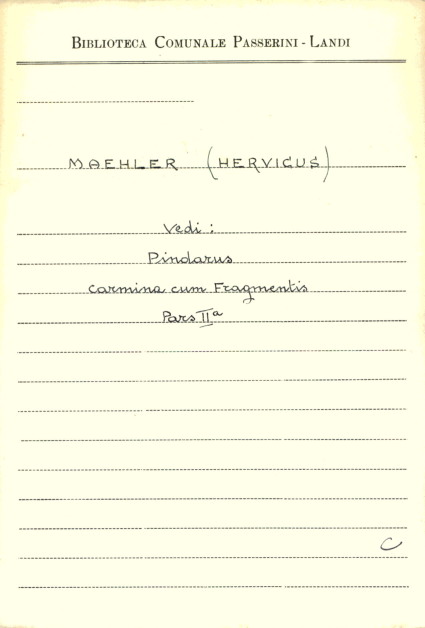 BIBLIOTECA COMUNALE PASSERINI - LANDI
MAEHLER (HERVICUS)
Vedi :
Pindarus
carmina cum Fragmentis
Pars IIa
C